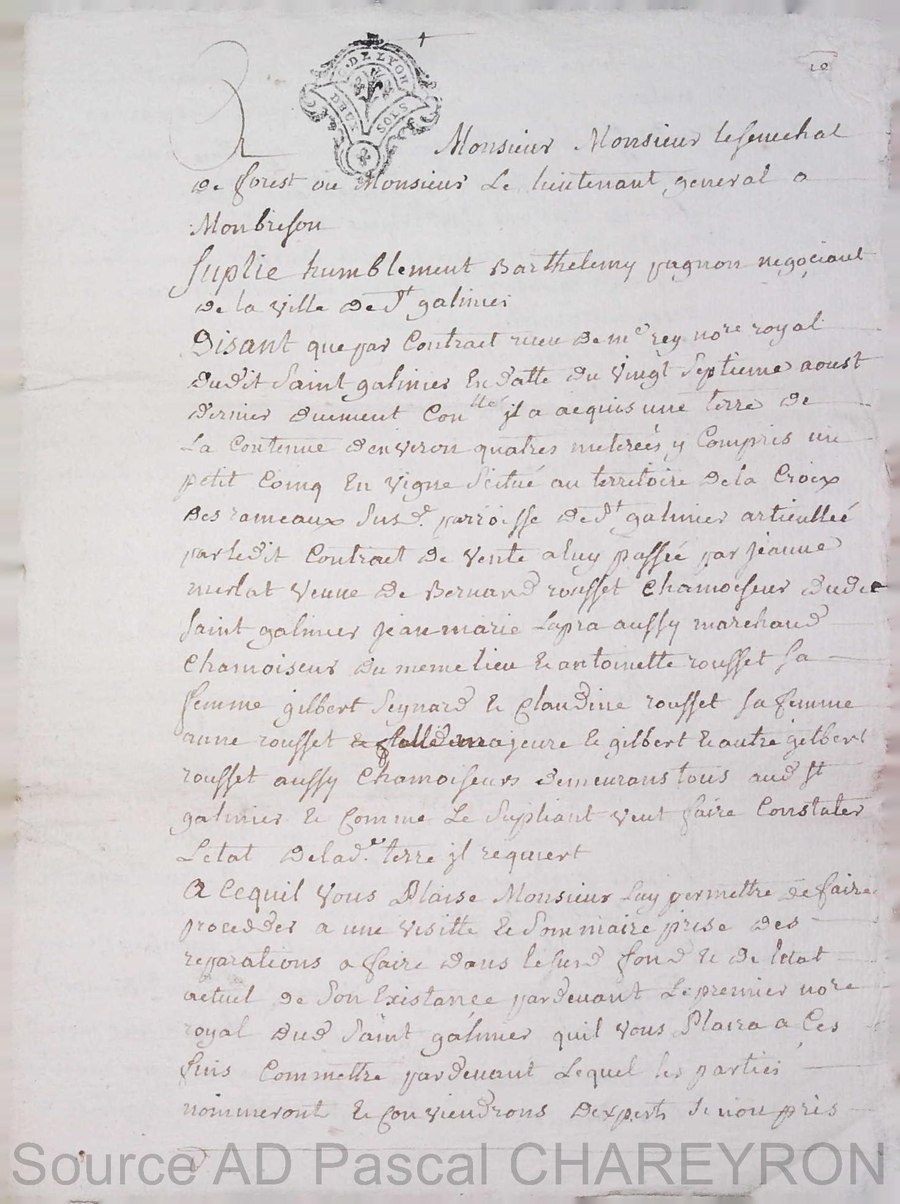 10
G. DE LYON
DEUX SOLS
A Monsieur Monsieur le senechal
de forest ou Monsieur Le lieutenant general a
Monbreson
Suplie humblement Barthelemy pagnon negociant
de la ville de St galmier
Disant que par Contract receu de me rey nore royal
dudit Saint galmier En datte du vingt Septieme aoust
dernier duement Conlle jl a acquis une terre de
La Contenue denviron quatres meterées y Compris un
petit Coing En vigne Scitué au territoire de la Croix
des rameaux Susde parroisse de St galmier articullée
par ledit Contract de Vente a luy passée par jeanne
merlat veuve de Bernard rousset Chamoiseur dudt
Saint galmier jean marie Lapra aussy marchand
Chamoiseur du meme lieu & antoinette rousset sa
femme gilbert Seynard & Claudine rousset sa femme
anne rousset fille majeure & gilbert & autre gilbert
rousset aussy Chamoiseurs demeurans tous aud St
galmier & Comme Le Supliant veut faire Constater
Letat de lade terre jl requiert
A Cequil Vous Plaise Monsieur Luy permettre de faire
proceder a une visitte & Sommaire prise des
reparations a faire dans le surd fond & de letat
actuel de Son Existance pardevant Le premier nore
royal dud Saint galmier quil vous Plaira a Ces
fins Commettre pardevant Lequel les parties
nommeront & Conviendrons dexperts Sinon pris
Source AD Pascal CHAREYRON